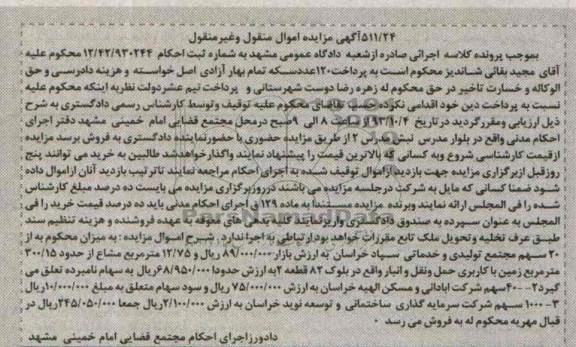 ۵۱۱/۲۴آگهی مزایده اموال منقول وغیرمنقول
بموجب پرونده کلاسه اجرائی صادره ازشعبه دادگاه عمومی مشهد به شماره ثبت احکام ۱۲/۴۲/۹۳۰۲۴۴ محکوم علیه
آقای مجید بقائی شاندیز محکوم است به پرداخت۱۲۰عددسکه تمام بهار آزادی اصل خواسته و هزینه دادرسی و حق
الوکاله و خسارت تاخیر در حق محکوم له زهره رضا دوست شهرستانی و پرداخت نیم عشردولت نظربه اینکه محکوم علیه
نسبت به پرداخت دین خود اقدامی نکرده تقاضای محکوم علیه توقیف وتوسط کارشناس رسمی دادگستری به شرح
ذیل ارزیابی ومقررگردید در تاریخ ۹۳/۱۰/۴ از ساعت ۸ الی ۹صبح درمحل مجتمع قضایی امام خمینی مشهد دفتر اجرای
احکام مدنی واقع در بلوار مدرس نبش مدرس ۲ از طریق مزایده حضوری با حضورنماینده دادگستری به فروش برسد مزایده
ازقیمت کارشناسی شروع وبه کسانی که بالاترین قیمت را پیشنهاد نمایند واگذارخواهدشد طالبین به خرید می توانند پنج
روزقبل ازبرگزاری مزایده جهت بازدید ازاموال توقیف شده به اجرای احکام مراجعه نمایند تاترتیب بازدید آنان ازاموال داده
شود ضمنا کسانی که مایل به شرکت درجلسه مزایده می باشند درروزبرگزاری مزایده می بایست ده درصد مبلغ کارشناس
شده را فی المجلس ارائه نمایند وبرنده مزایده مستندا به ماده ۱۲۹ ق اجرای احکام مدنی باید ده درصد قیمت خرید را فی
المجلس به عنوان سپرده به صندوق دادگستری واریزنماید کلیه هزینه های معوقه به عهده فروشنده و هزینه تنظیم سند
طبق عرف تخلیه وتحویل ملک تابع مقررات خواهد بودارتباطی به اجرا ندارد. شرح اموال مزایده : به میزان محکوم به از
۲۰ سهم مجتمع تولیدی و خدماتی سپاد خراسان به ارزش بازار۸۹/۰۰۰/۰۰۰ریال و ۱۲/۷۵ مترمربع مشاع از حدود ۳۰۰/۱۵
مترمربع زمین با کاربری حمل ونقل و انبار واقع در بلوک ۸۲ قطعه ۲به ارزش حدودا ۶۸/۹۵۰/۰۰۰ریال به سهام نامبرده تعلق می
گیرد۲- ۴۰۰سهم شرکت اباداتی و مسکن الهیه خراسان به ارزش ۷۵/۰۰۰/۰۰۰ریال و سود سهام متعلق به مبلغ ۱۰/۰۰۰/۰۰۰ریال
۳- ۱۰۰۰ سهم شرکت سرمایه گذاری ساختمانی و توسعه نوید خراسان به ارزش ۲/۱۰۰/۰۰۰ریال جمعا ۲۴۵/۰۵۰/۰۰۰ریال در
قبال مهریه محکوم له به فروش می رسد .
دادورزاجرای احکام مجتمع قضایی امام خمینی مشهد